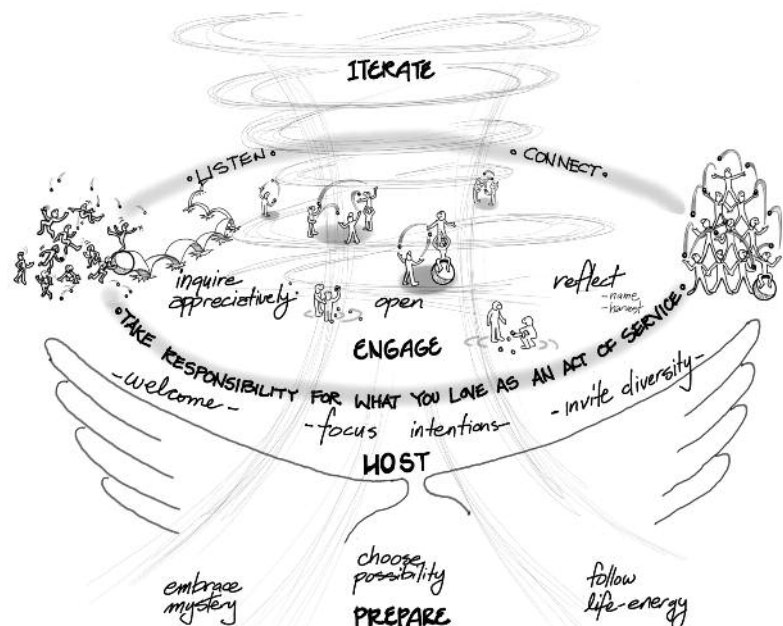 ITERATE
• LISTEN •
• CONNECT •
inquire
appreciatively
open
reflect
-name
-harvest
ENGAGE
• TAKE RESPONSIBILITY FOR WHAT YOU LOVE AS AN ACT OF SERVICE •
-welcome-
-focus intentions-
-invite diversity-
HOST
embrace
mystery
choose
possibility
follow
life-energy
PREPARE